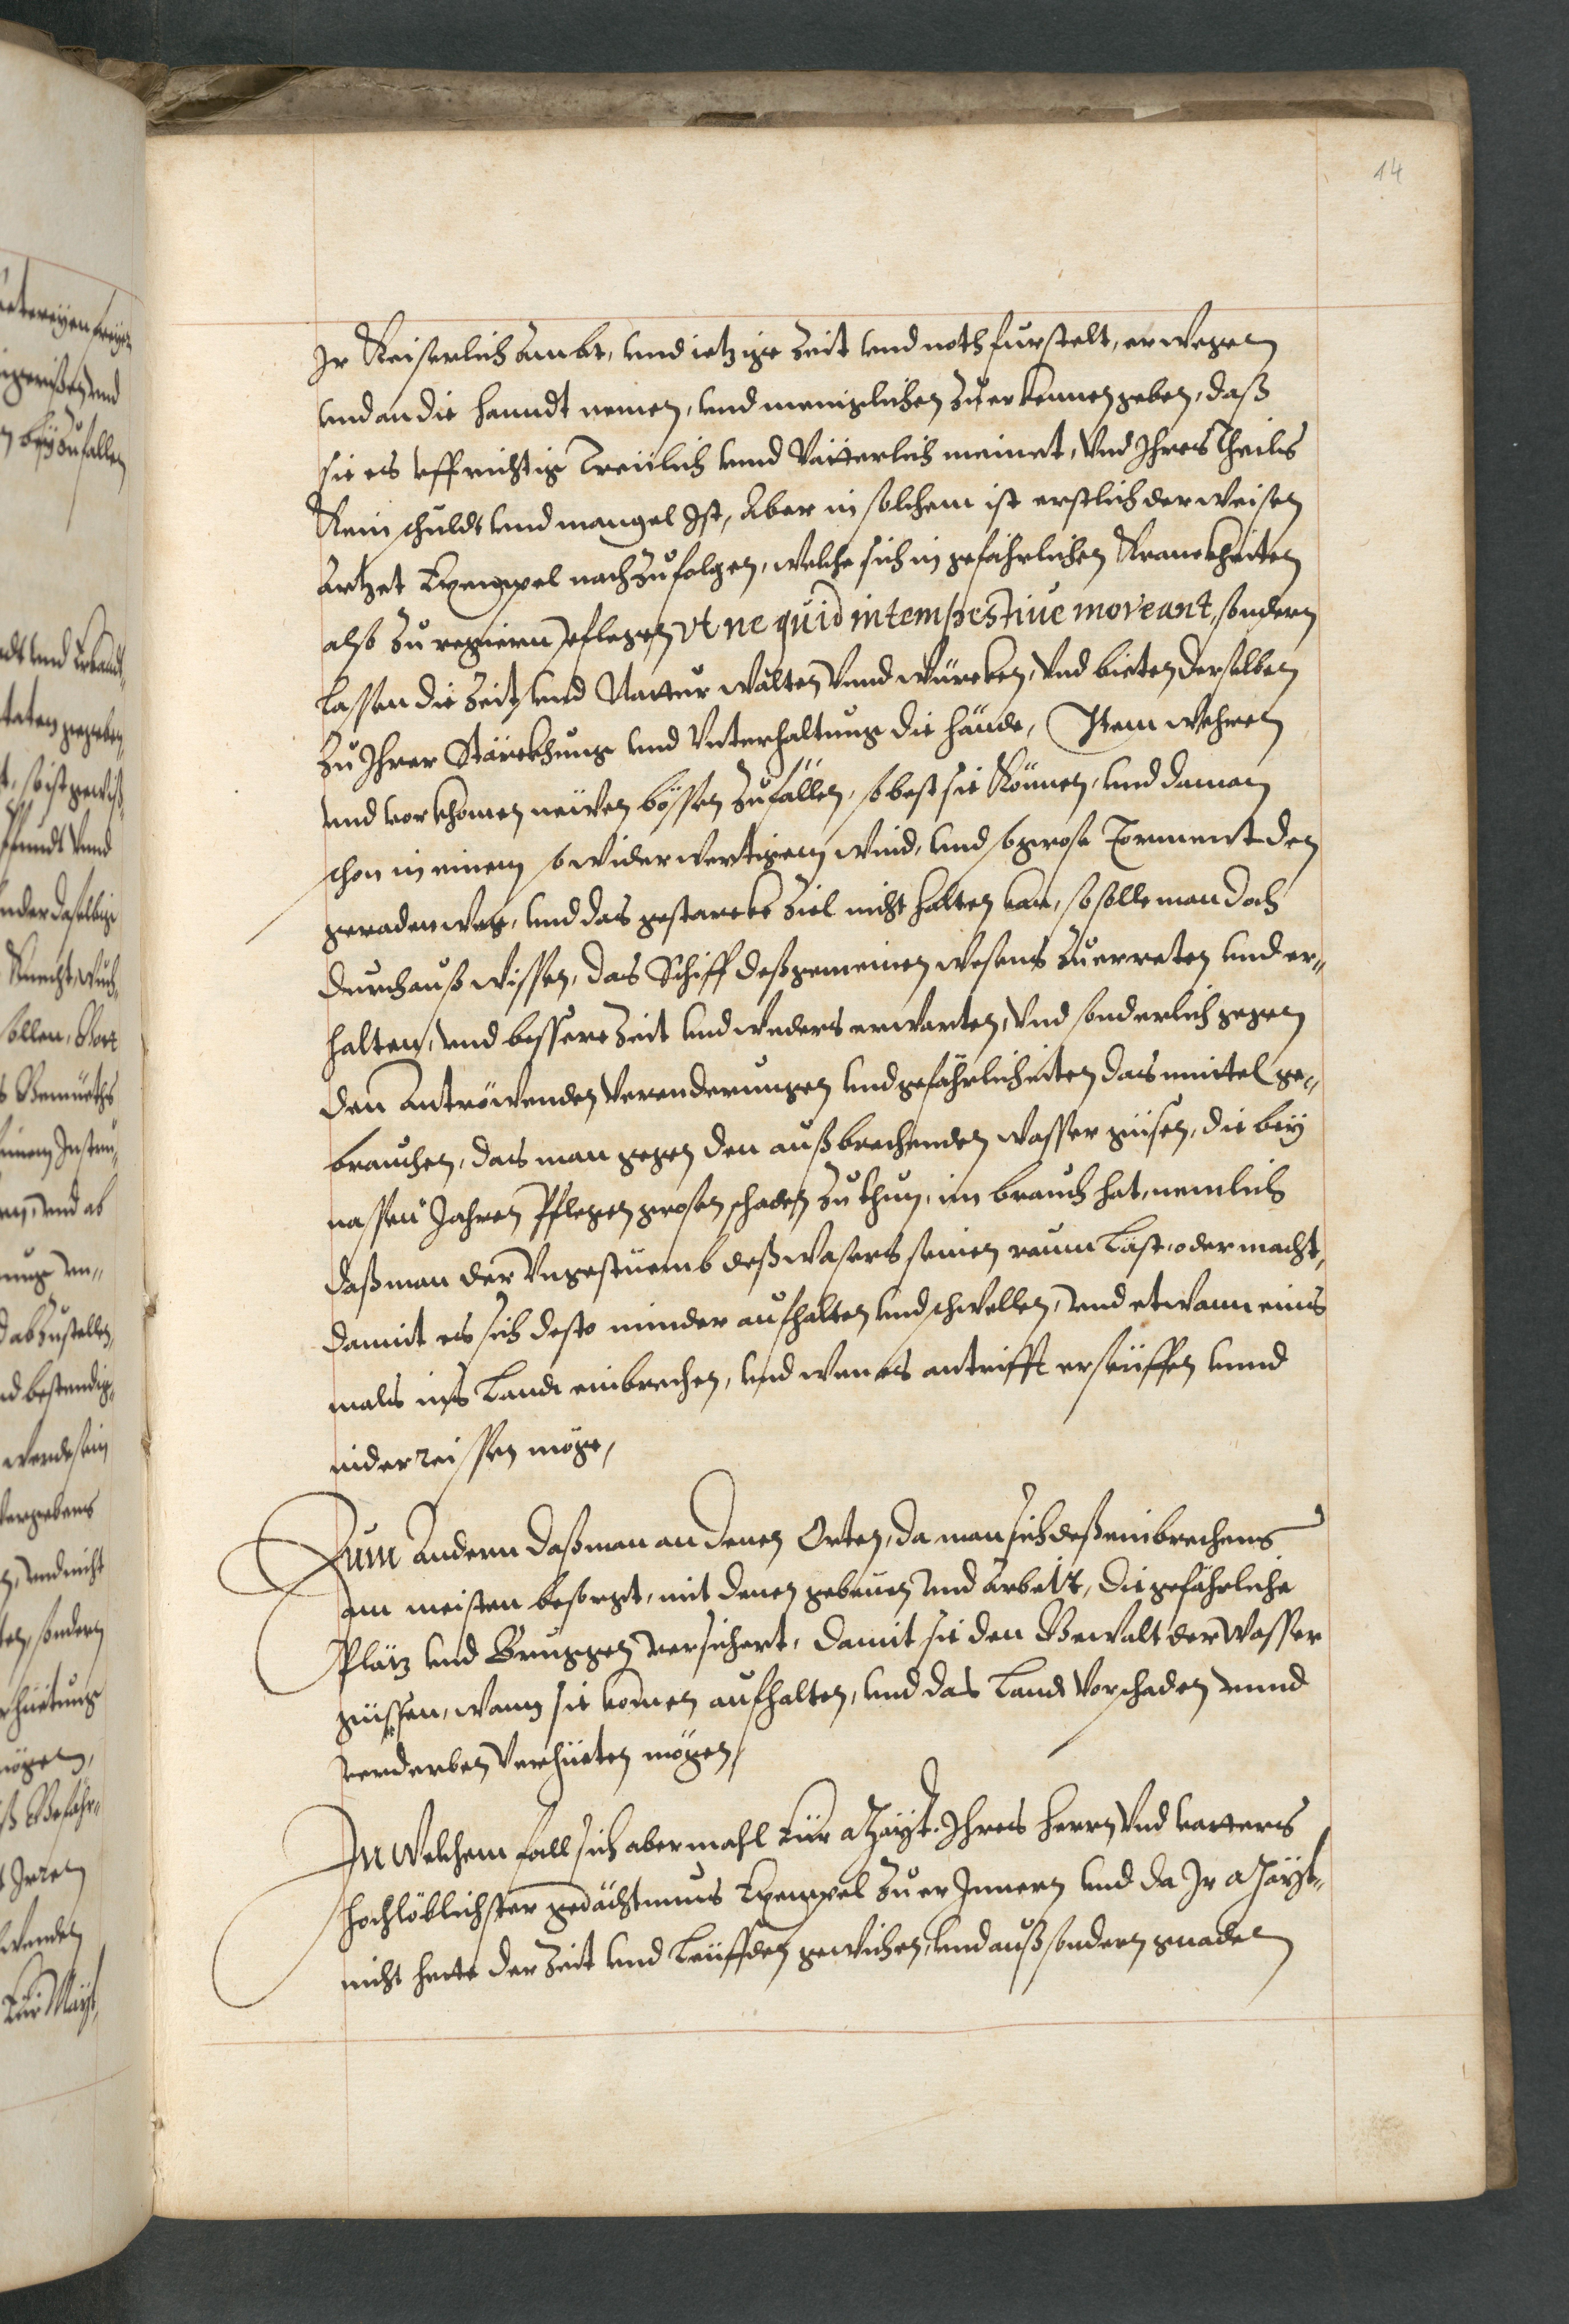 14
Ir Keiserlich Ambt, und ietzige Zeit und noth furstelt, erwegen
und an die handt nemen, und meniglichen zu erkennen geben, daß
sie es uffrichtig Treülich unnd Vätterlich meinet, Vnd Ihres Theils
Kein schuldt und mangel Ist, Aber in solchem ist erstlich der weisen
Artzet Exempel nachzufolgen, welche sich in gefährlichen Kranckheiten
also zu regieren pflegen vt ne quid intempestiue moveant, sondern
lassen die Zeit und Nattur walten Vnnd würcken, Vnd bieten derselben
zu Ihrer Stärckhung und Vnterhaltung die hände, Item wehren
und vorkhomen neüwen bössen Zufällen, so best sie Können, und da man
schon in einem so widerwertigem wind, und so grose Torment den
geraden weg, und das gestarckt Ziel nicht halten kan, so solle man doch
durchauß wissen, das Schiff deß gemeinen wesens zu erreten und er„
halten, und bessere Zeit und weders erwarten, Vnd sonderlich gegen
den Antröwenden Veranderungen und gefährlicheiten das mittel ge„
brauchen, das man gegen den außbrechenden wasser güsen, die bey
nassen Jahren Pflegen grosen schaden zu thun, im brauch hat, nemlich
daß man der Vngestüemb deß wasers seinen raum läst, oder macht,
damit es sich desto minder aufhalten und schwellen, und etwann eins
mals ins Landt einbrechen, und wen es antrifft erseüffen unnd
niderreissen möge,
Zum Andern daß man an denen Orten, da man sich deß einbrechens
am meisten besorgt, mit denen gebeuen und Arbeit, die gefährliche
Plätz und Bruggen versichert, damit sie den Gewalt der Wasser
güssen, wann sie komen aufhalten, und das Landt Vor schaden unnd
verderben Verhüeten mögen,
In Welchem fall sich abermahl Eür Mayt. Ihres herrn Vnd vatters
hochlöblichster gedächtnus Exempel zu er Innern und da Ir Mayt„
nicht hette der Zeit und Leüffden gewichen, und auß sondern gnaden